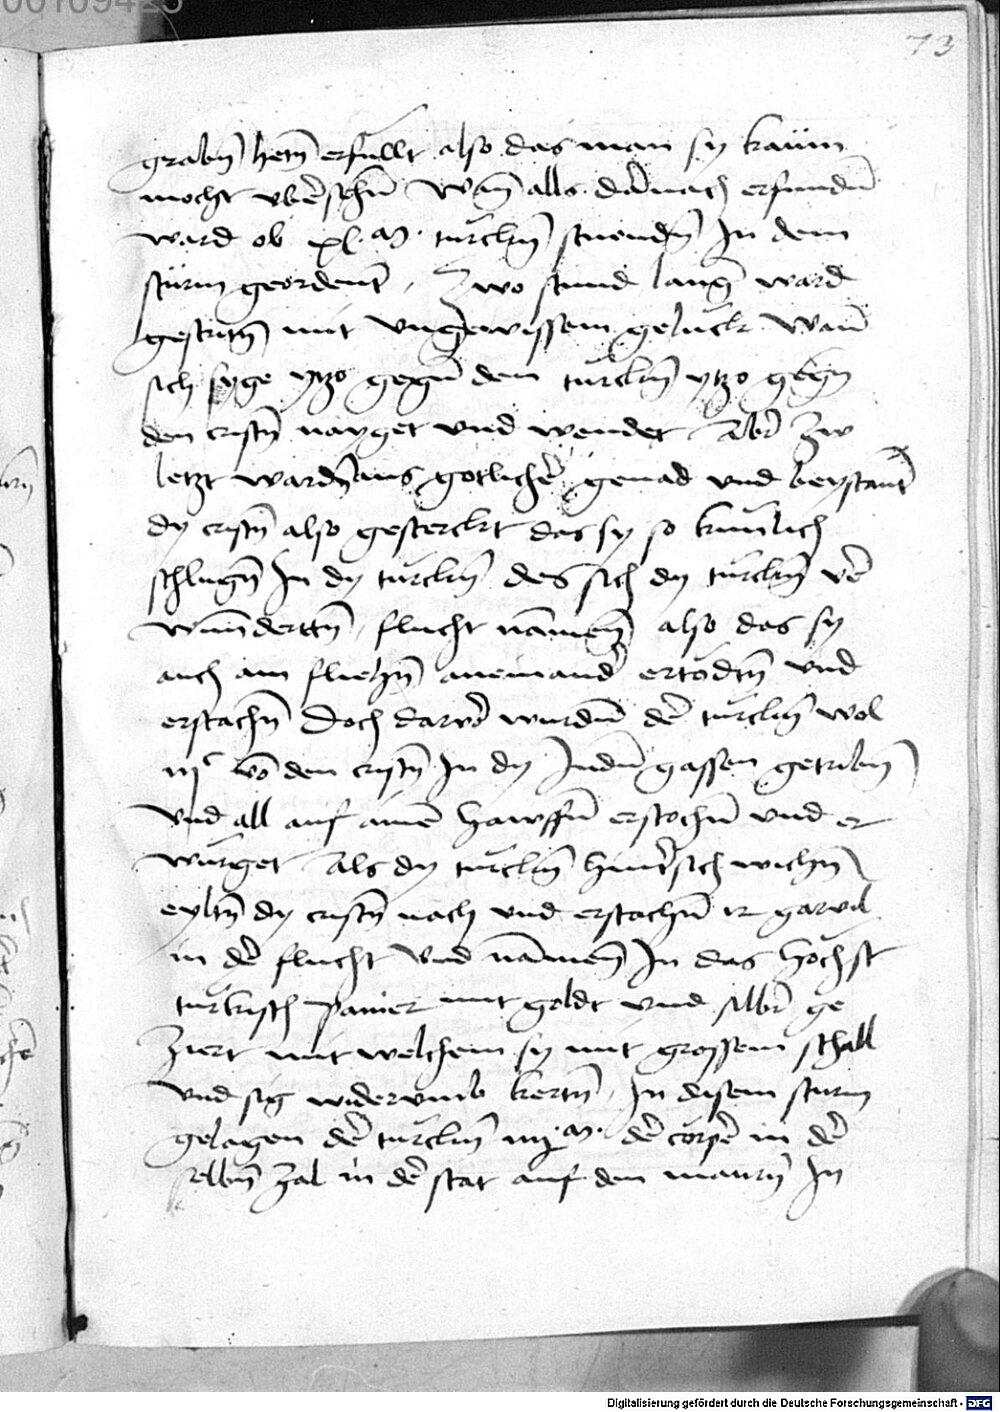 73
grabn̄ hetn̄ erfullt also das man sy kaüm
mocht vber̄sehn̄ Wan̄ alls dar̄nach erfundn̄
ward ob xl. M. türckn̄ stuendn̄ In dem
stürm geordent, Zwo stund lang ward
gestritn̄ mit vngewissem gelückh Wan̄
sich syge ytzo gegn̄ dem türckn̄ ytzo gegn̄
den cristn̄ nayget vnd wendet Aber̄ Zw
letzt wardn̄ aus gotlicher̄ genad vnd beystant
dy cristn̄ also gesterckt das sy so kunlich
schlugn̄ In dy türckn̄ des sich dy türckn̄ ver̄
wunderttn̄, flucht namen̄ also das sy
auch am fliehn̄ aneinander̄ ertödtn̄ vnd
erstachn̄ Doch daruor̄ wurdn̄ der̄ türckn̄ wol
iijc vō den cristn̄ In dy Judn̄ gassen getribn̄
vnd all auf ainē hawffn̄ erstochn̄ vnd er
würget Als dy türckn̄ hinter̄sich wichn̄
eyltn̄ dy cristn̄ nach vnd erstachn̄ ir gar vil
in der̄ flucht vnd namen̄ In das höchst
türkisch panier mit goldt vnd silber̄ ge
Ziert mit welchem sy mit grossem schall
vnd sig widerumb kertn̄, In disem sturm
gelagen der̄ türckn̄ iiij. M. der̄ cörper̄ in der̄
selbn̄ Zal in der̄ stat auf den maurn̄ In
Digitalisierung gefördert durch die Deutsche Forschungsgemeinschaft - DFG